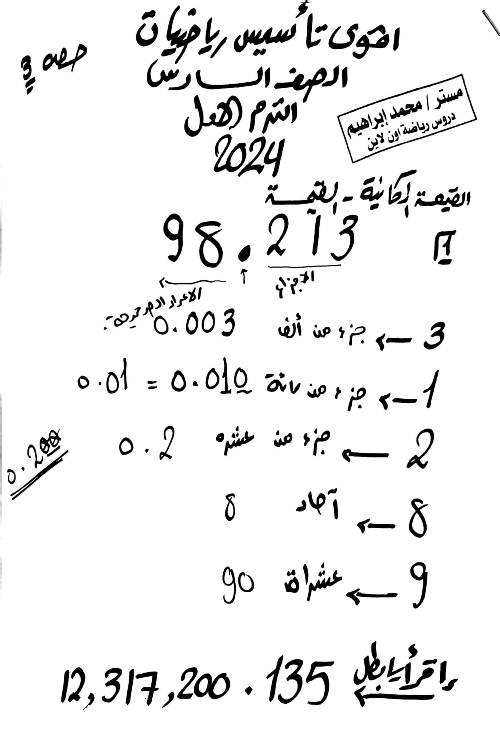 اقوى تأسيس رياضيات
حصه 3
الصف السادس
الترم الاول
2024
مستر / محمد إبراهيم
دروس رياضة اون لاين
القيمة المكانية - القيمة
1
98.213
الاجزاء
الاعداد الصحيحة
3 ← جزء من ألف 0.003
1 ← جزء من مائة 0.010 = 0.01
2 ← جزء من عشره 0.2
0.200
8 ← آحاد 8
9 ← عشرات 90
اقرأ يا بطل ← 12,317,200.135